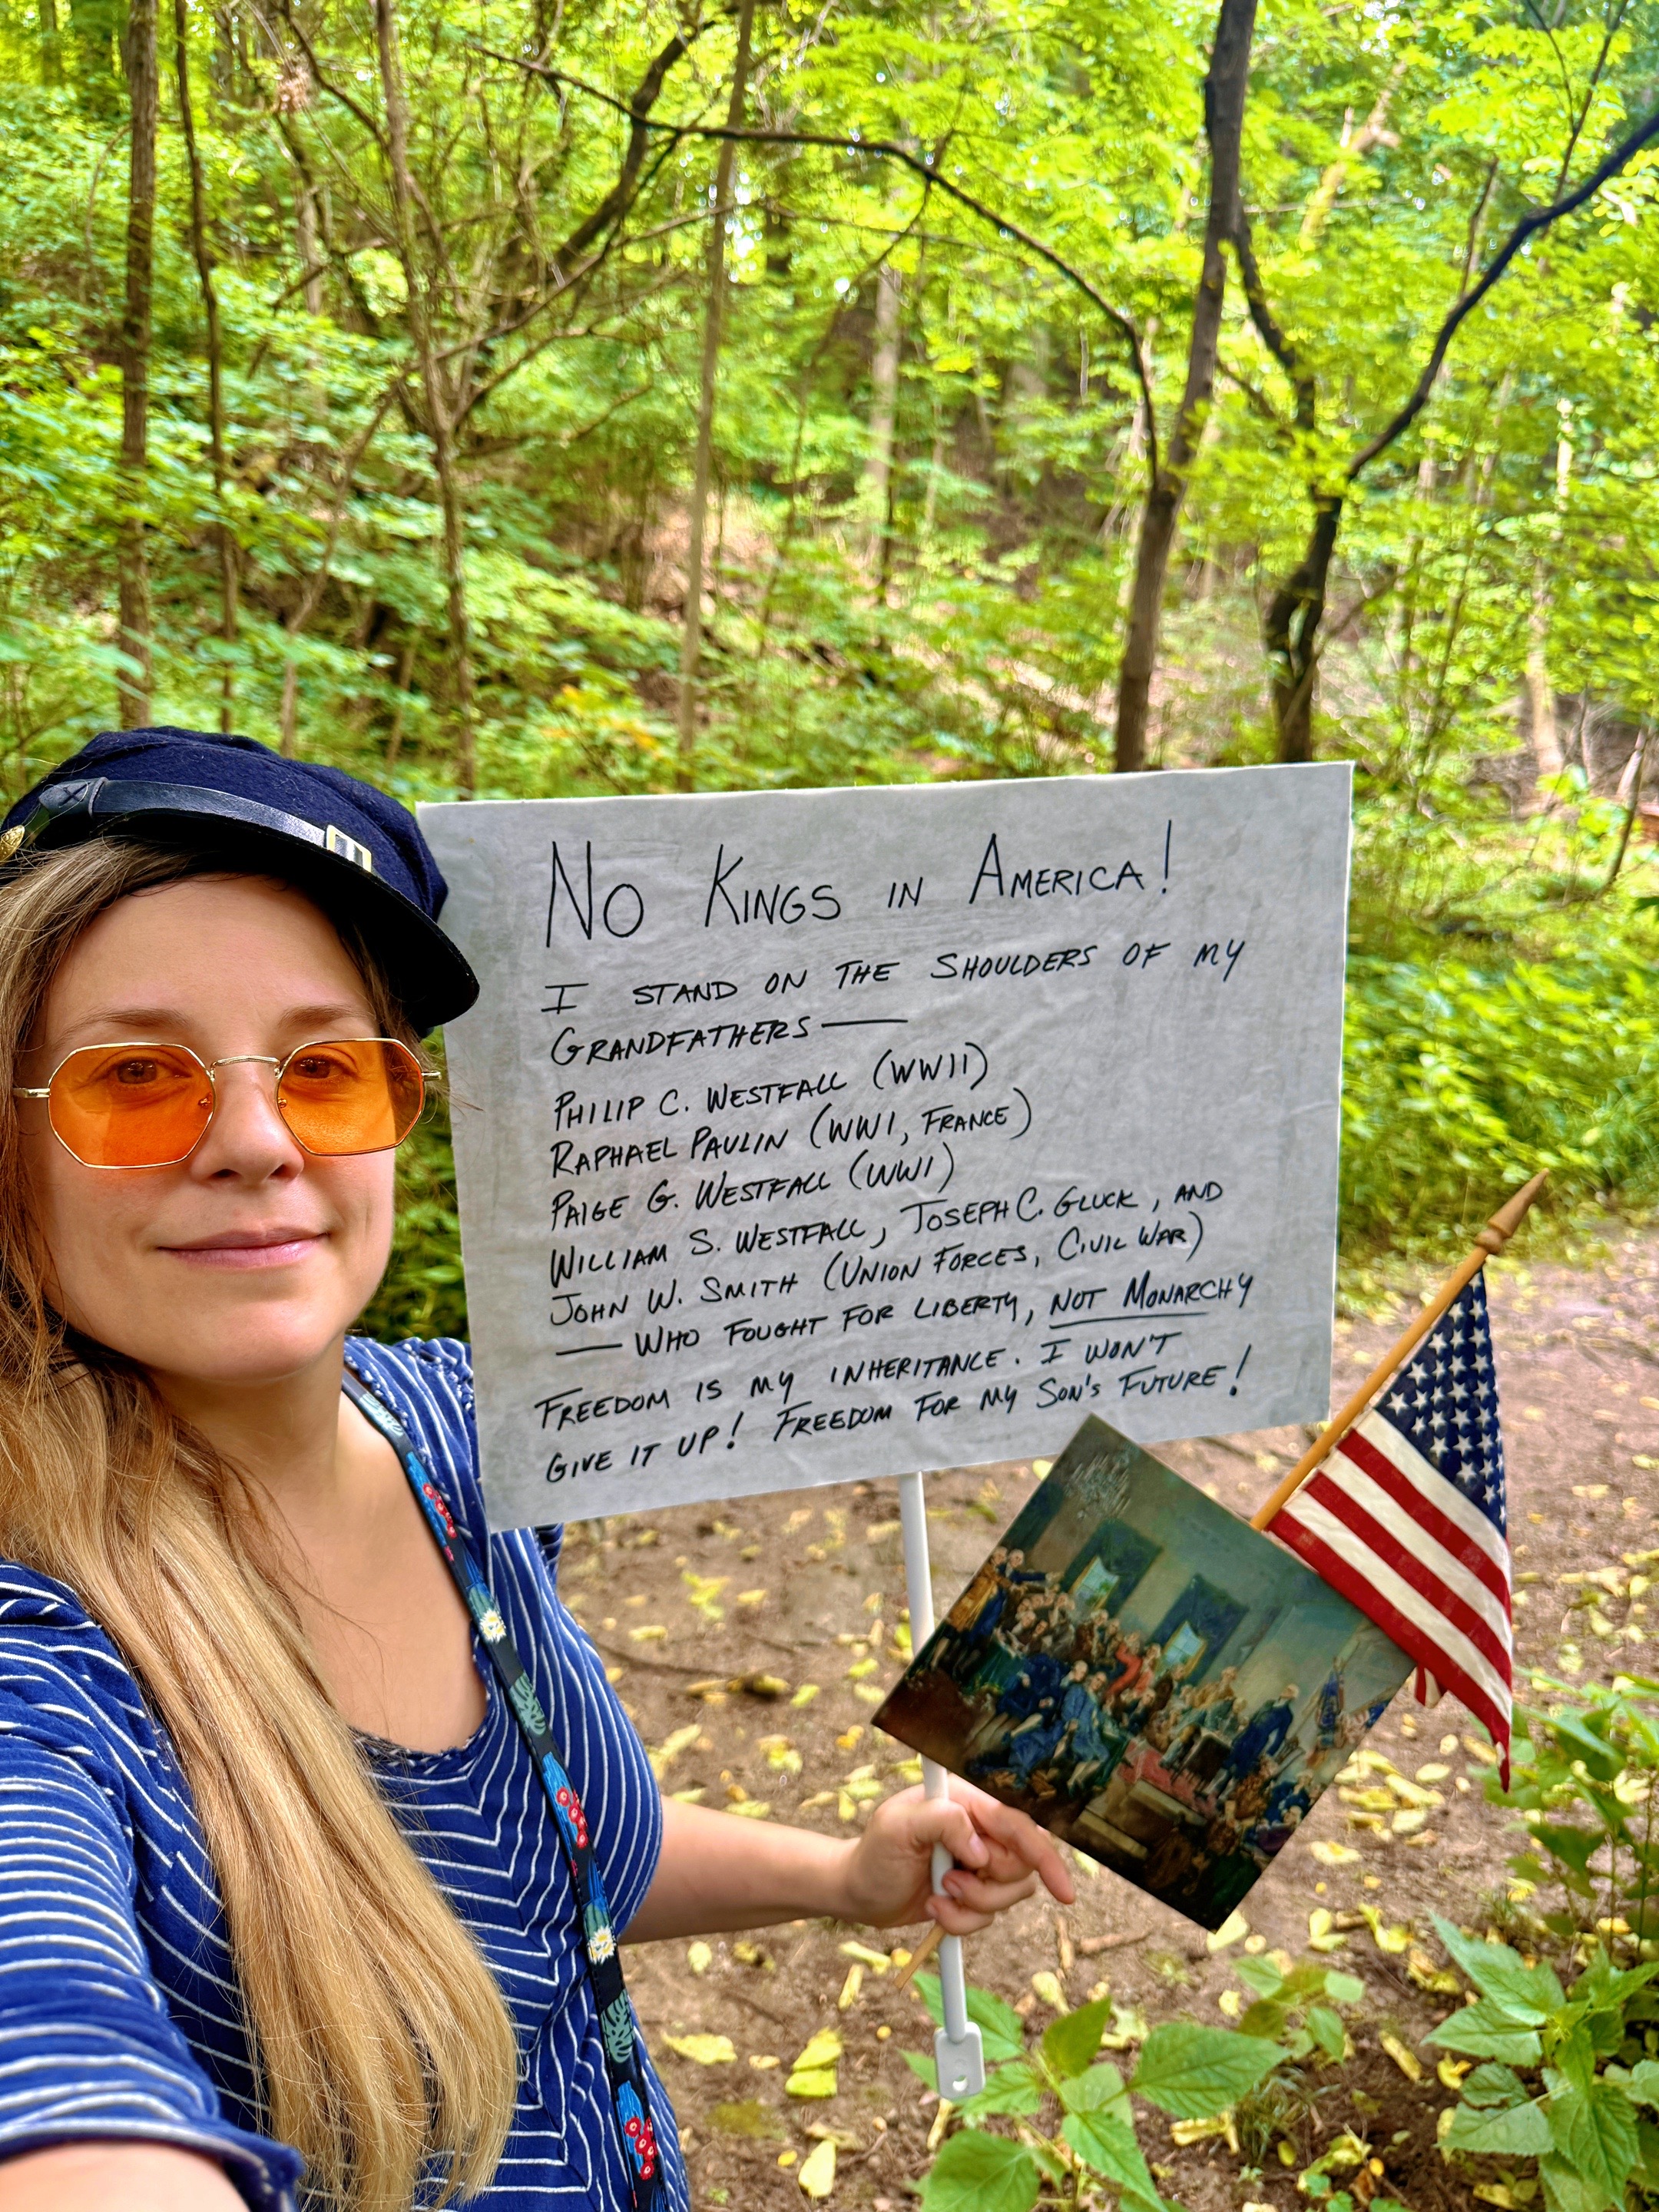 NO KINGS IN AMERICA!
I STAND ON THE SHOULDERS OF MY
GRANDFATHERS —
PHILIP C. WESTFALL (WWII)
RAPHAEL PAULIN (WWI, FRANCE)
PAIGE G. WESTFALL (WWI)
WILLIAM S. WESTFALL, JOSEPH C. GLUCK, AND
JOHN W. SMITH (UNION FORCES, CIVIL WAR)
— WHO FOUGHT FOR LIBERTY, NOT MONARCHY
FREEDOM IS MY INHERITANCE. I WON'T
GIVE IT UP! FREEDOM FOR MY SON'S FUTURE!